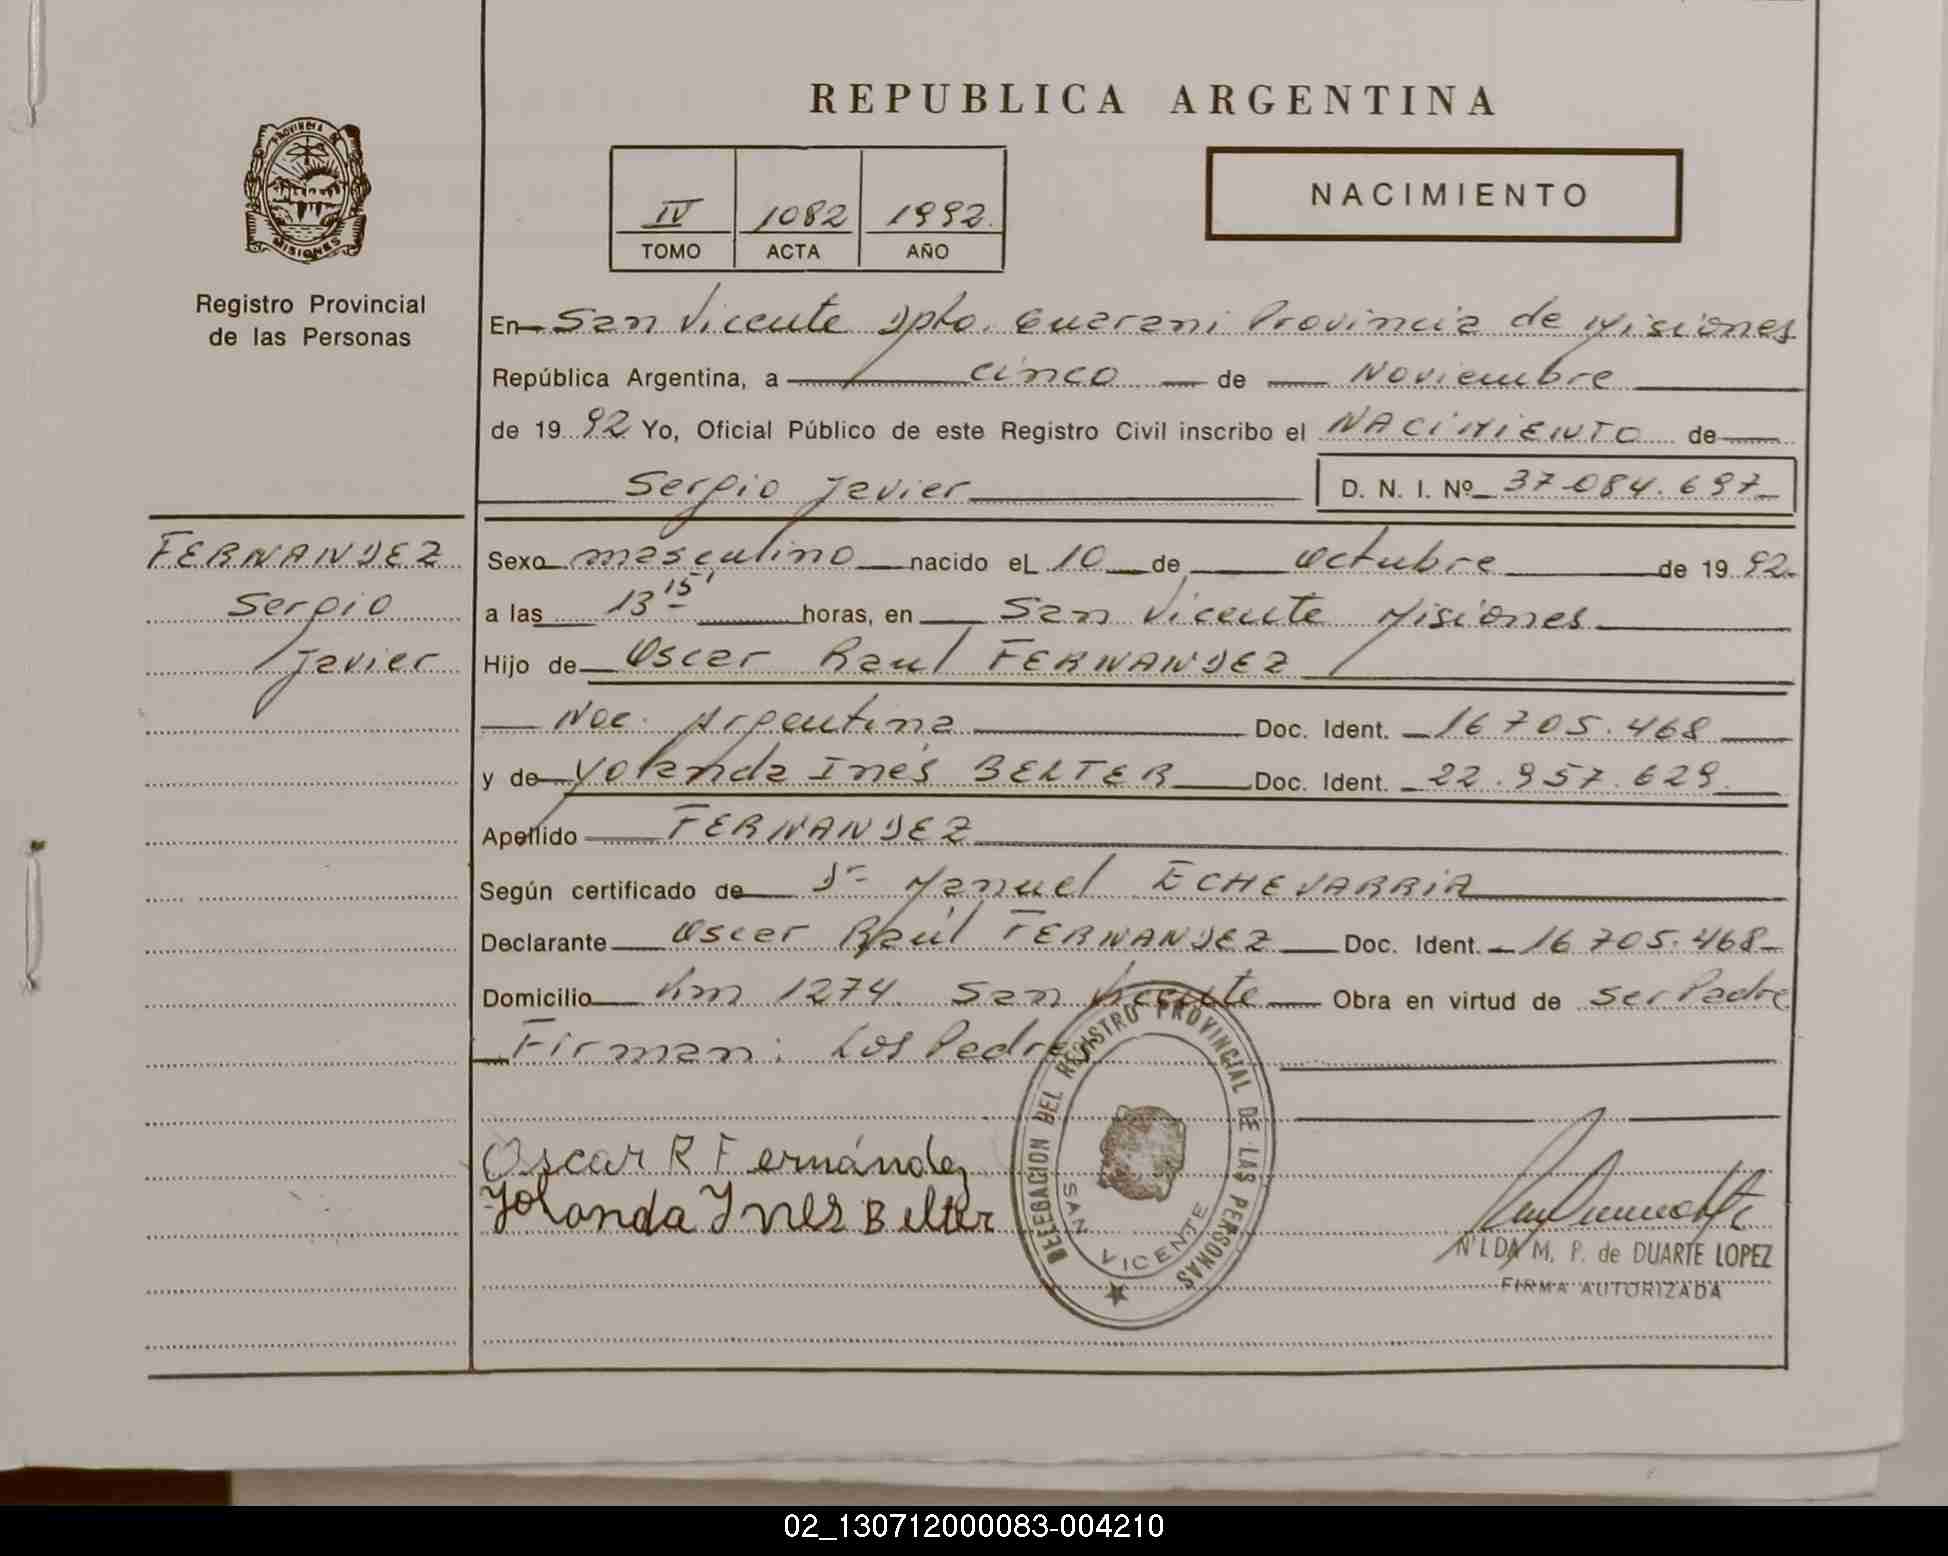 REPUBLICA ARGENTINA
PROVINCIA DE
MISIONES
Registro Provincial
de las Personas
IV 1082 1992.
TOMO ACTA AÑO
NACIMIENTO
En San Vicente Dpto. Guarani Provincia de Misiones
República Argentina, a cinco de Noviembre
de 1992 Yo, Oficial Público de este Registro Civil inscribo el NACIMIENTO de
Sergio Javier D. N. I. Nº 37.084.697
FERNANDEZ
Sergio
Javier
Sexo masculino nacido el 10 de Octubre de 1992
a las 13 15' horas, en San Vicente Misiones
Hijo de Oscar Raul FERNANDEZ
Nac. Argentina Doc. Ident. 16.705.468
y de Yolanda Inés BELTER Doc. Ident. 22.957.629
Apellido FERNANDEZ
Según certificado de Dr Manuel ECHEVARRIA
Declarante Oscar Raúl FERNANDEZ Doc. Ident. 16.705.468
Domicilio Km 1274 San Vicente Obra en virtud de ser Padre
Firman: Los Padres
Oscar R Fernández
Yolanda Ynes Belter
DELEGACION DEL REGISTRO PROVINCIAL DE LAS PERSONAS
SAN VICENTE
NILDA M. P. de DUARTE LOPEZ
FIRMA AUTORIZADA
02_130712000083-004210